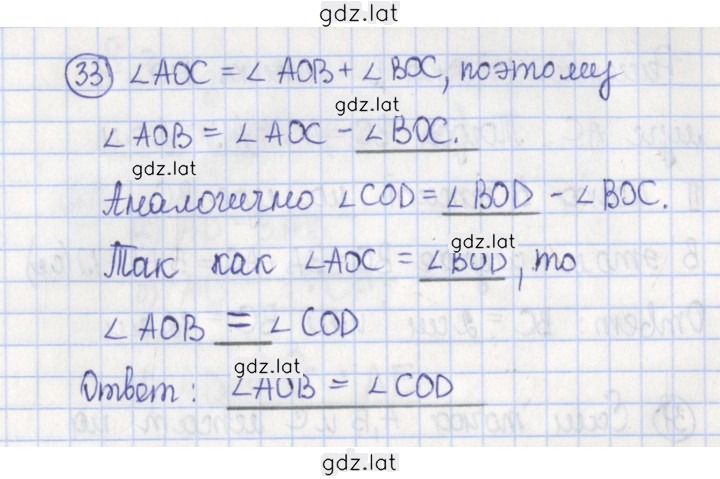 gdz.lat
33 ∠AOC = ∠AOB + ∠BOC, поэтому
gdz.lat
∠AOB = ∠AOC - ∠BOC.
gdz.lat
Аналогично ∠COD = ∠BOD - ∠BOC.
gdz.lat
Так как ∠AOC = ∠BOD, то
∠AOB = ∠COD
gdz.lat
Ответ: ∠AOB = ∠COD
gdz.lat